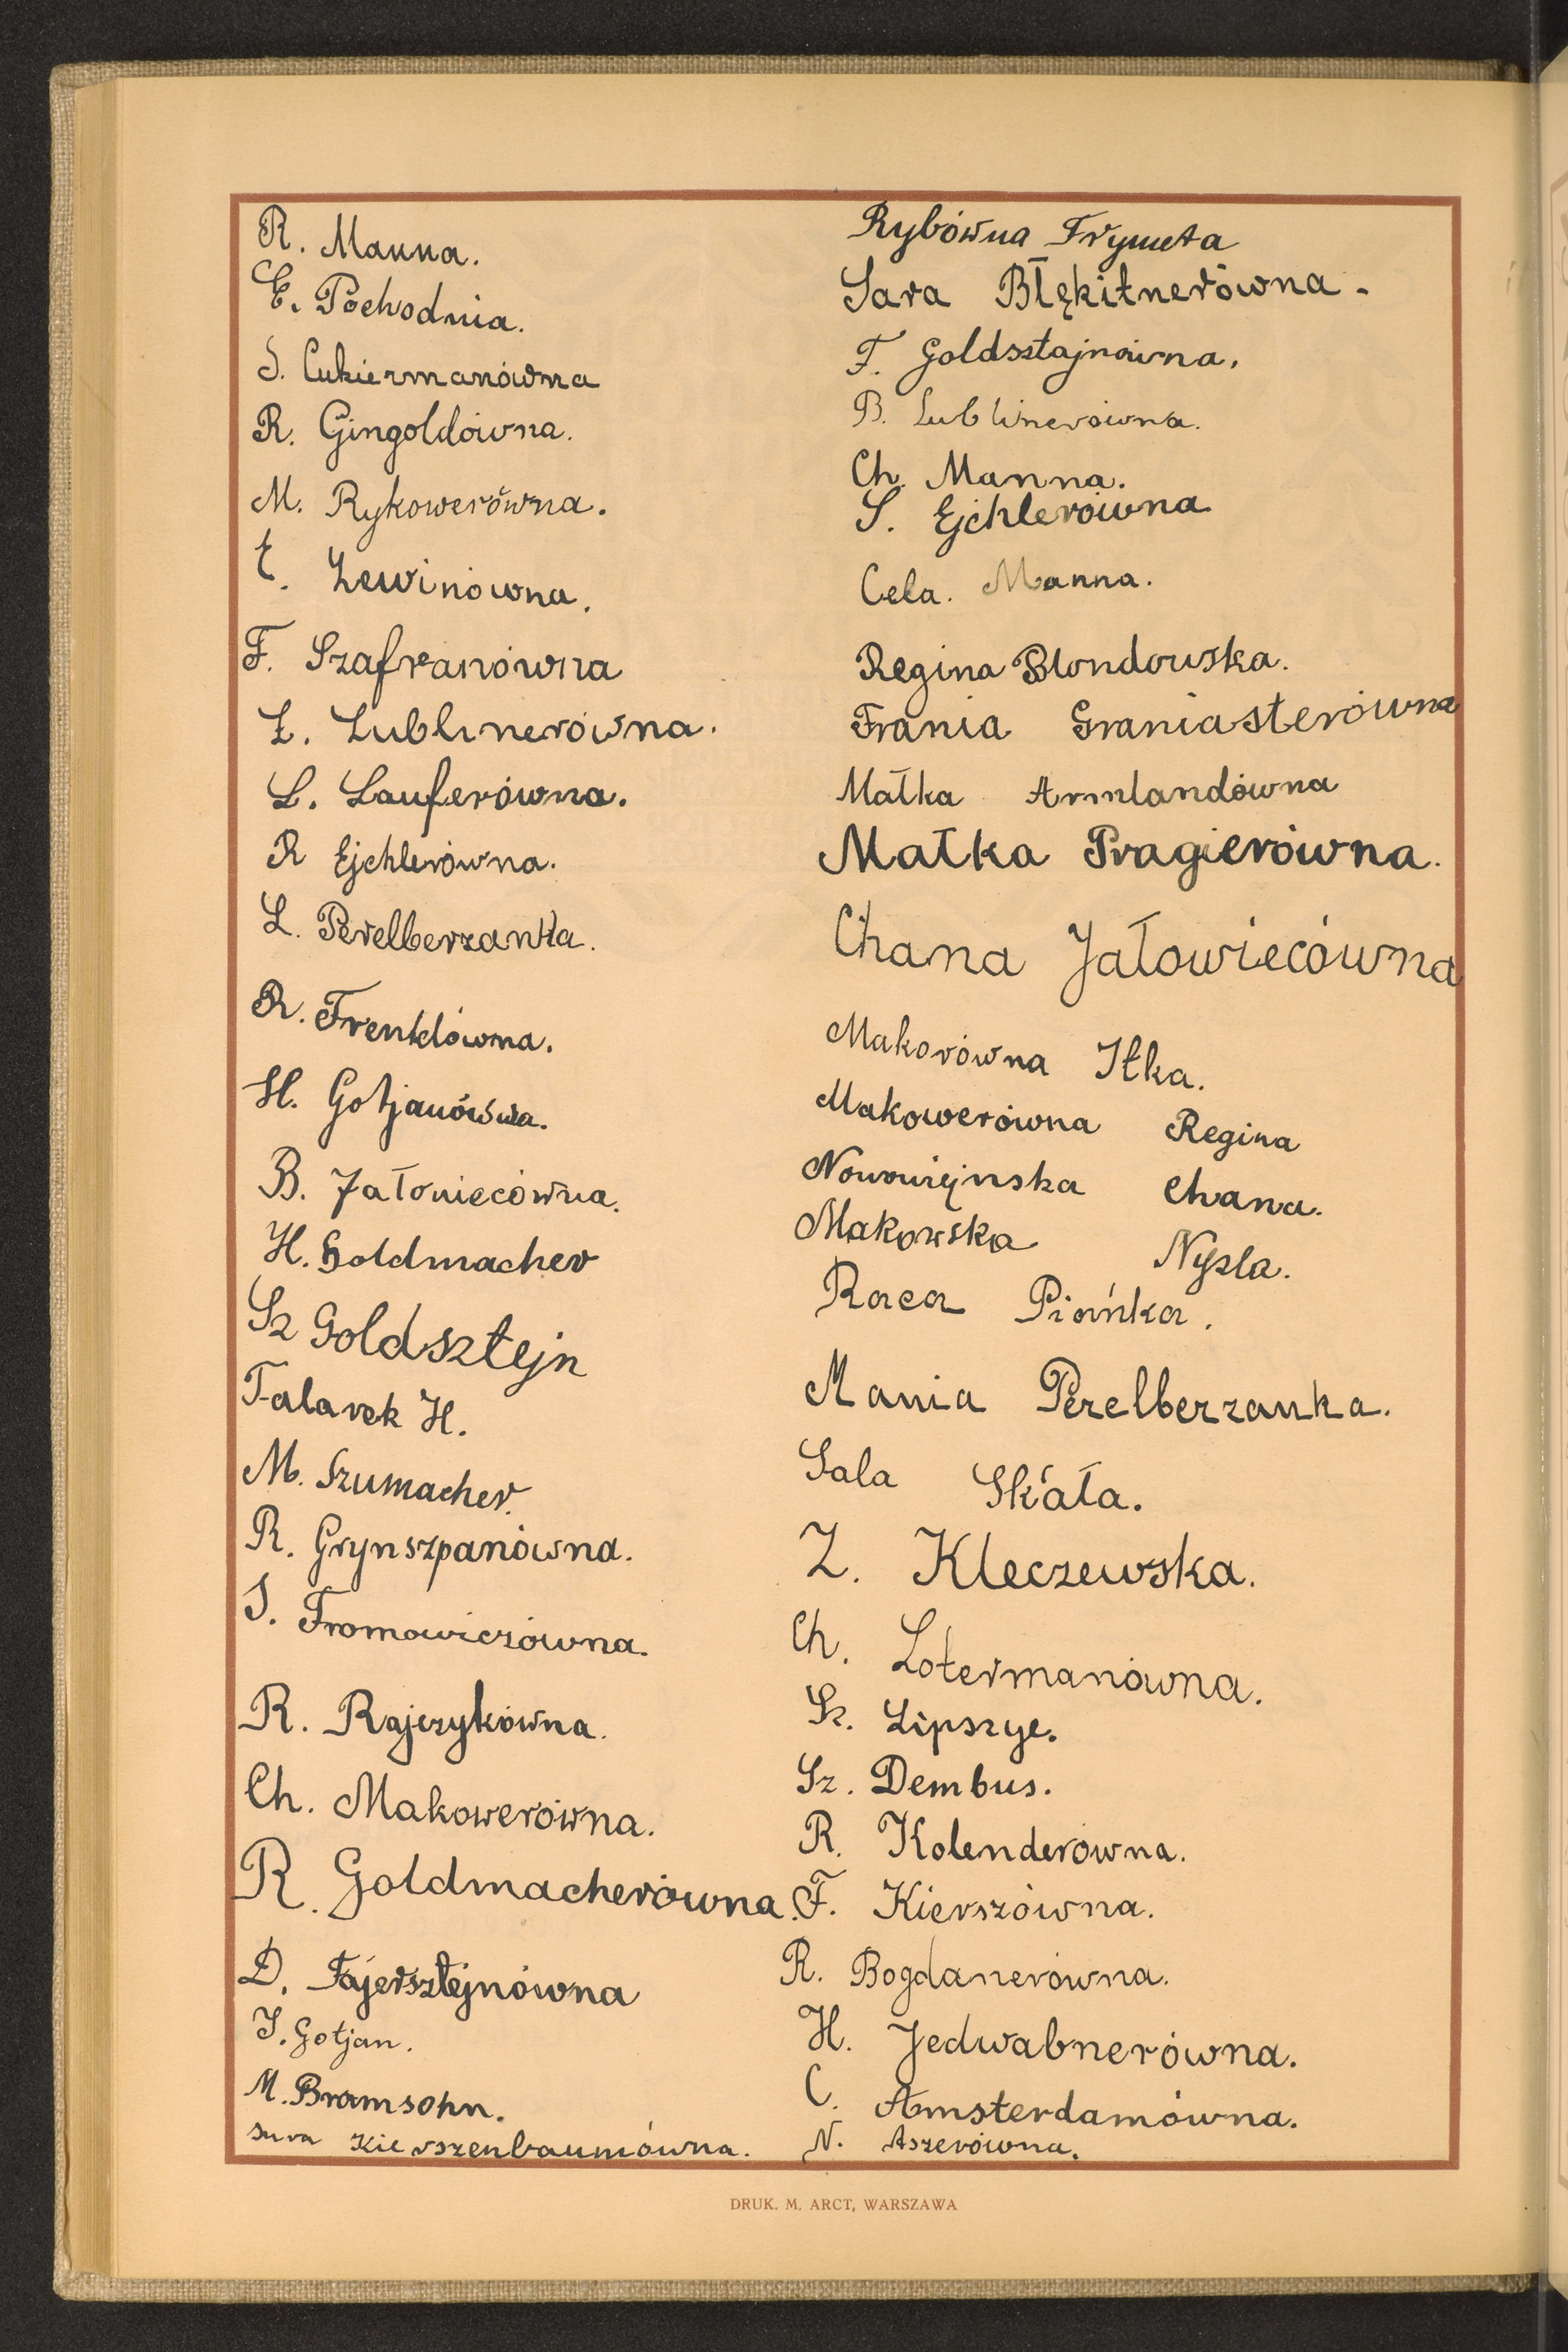 R. Manna.
E. Pochodnia.
S. Cukiermanówna
R. Gingoldówna.
M. Rykowerówna.
E. Lewinówna.
F. Szafranówna
Ł. Lublinerówna.
L. Lauferówna.
R Ejchlerówna.
L. Perelberzanka.
R. Frenklówna.
H. Gotjanówna.
B. Jałowiecówna.
H. Goldmacher
Sz Goldsztejn
Talarek H.
M. Szumacher.
R. Grynszpanówna.
S. Fromowiczówna.
R. Rajczykówna.
Ch. Makowerówna.
R. Goldmacherówna.
D. Fajersztejnówna
I. Gotjan.
M. Bramsohn.
Sura Kierszenbaumówna.
Rybówna Frymeta
Sara Błękitnerówna.
F. Goldsztajnówna.
B. Lublinerówna.
Ch. Manna.
S. Ejchlerówna
Cela. Manna.
Regina Blondowska.
Frania Graniasterówna
Małka Armlandówna
Małka Pragierówna.
Chana Jałowiecówna
Makorówna Itka.
Makowerówna Regina
Nowowiejnska Chana.
Makowska Nysla.
Raca Piańka.
Mania Perelberzanka.
Sala Skáła.
Z. Kleczewska.
Ch. Lotermanówna.
Sz. Lipszyc.
Sz. Dembus.
R. Kolenderówna.
F. Kierszówna.
R. Bogdanerówna.
H. Jedwabnerówna.
C. Amsterdamówna.
N. Aszerówna.
DRUK. M. ARCT, WARSZAWA